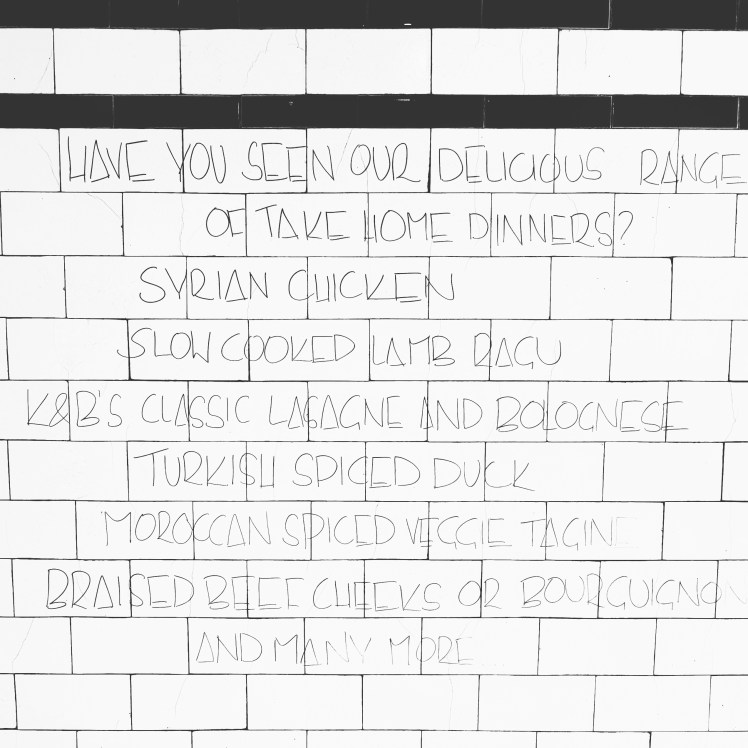 HAVE YOU SEEN OUR DELICIOUS RANGE
OF TAKE HOME DINNERS?
SYRIAN CHICKEN
SLOW COOKED LAMB RAGU
K&B'S CLASSIC LASAGNE AND BOLOGNESE
TURKISH SPICED DUCK
MOROCCAN SPICED VEGGIE TAGINE
BRAISED BEEF CHEEKS OR BOURGUIGNON
AND MANY MORE...